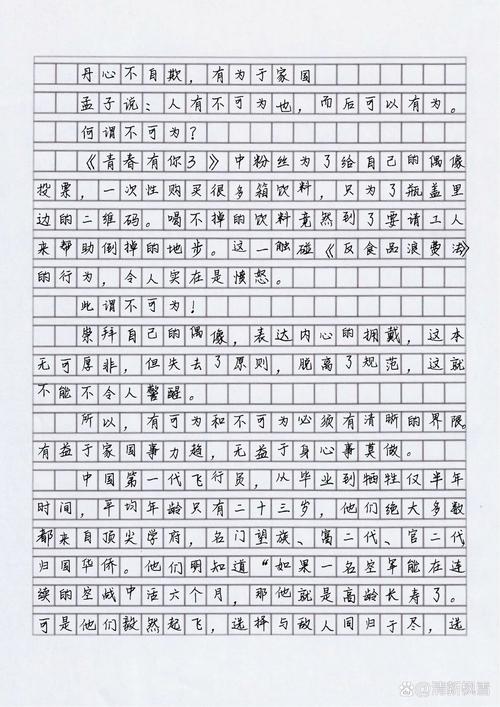 丹心不自欺，有为于家国
孟子说：人有不可为也，而后可以有为。
何谓不可为？
《青春有你3》中粉丝为了给自己的偶像
投票，一次性购买很多箱饮料，只为了瓶盖里
边的二维码。喝不掉的饮料竟然到了要请工人
来帮助倒掉的地步。这一触碰《反食品浪费法》
的行为，令人实在是愤怒。
此谓不可为！
崇拜自己的偶像，表达内心的拥戴，这本
无可厚非，但失去了原则，脱离了规范，这就
不能不令人警醒。
所以，有可为和不可为必须有清晰的界限。
有益于家国事力趋，无益于身心事莫做。
中国第一代飞行员，从毕业到牺牲仅半年
时间，平均年龄只有二十三岁，他们绝大多数
都来自顶尖学府，名门望族、富二代、官二代
归国华侨。他们明知道“如果一名空军能在连
续的空战中活六个月，那他就是高龄长寿了。
可是他们毅然起飞，选择与敌人同归于尽，选
清新枫雪